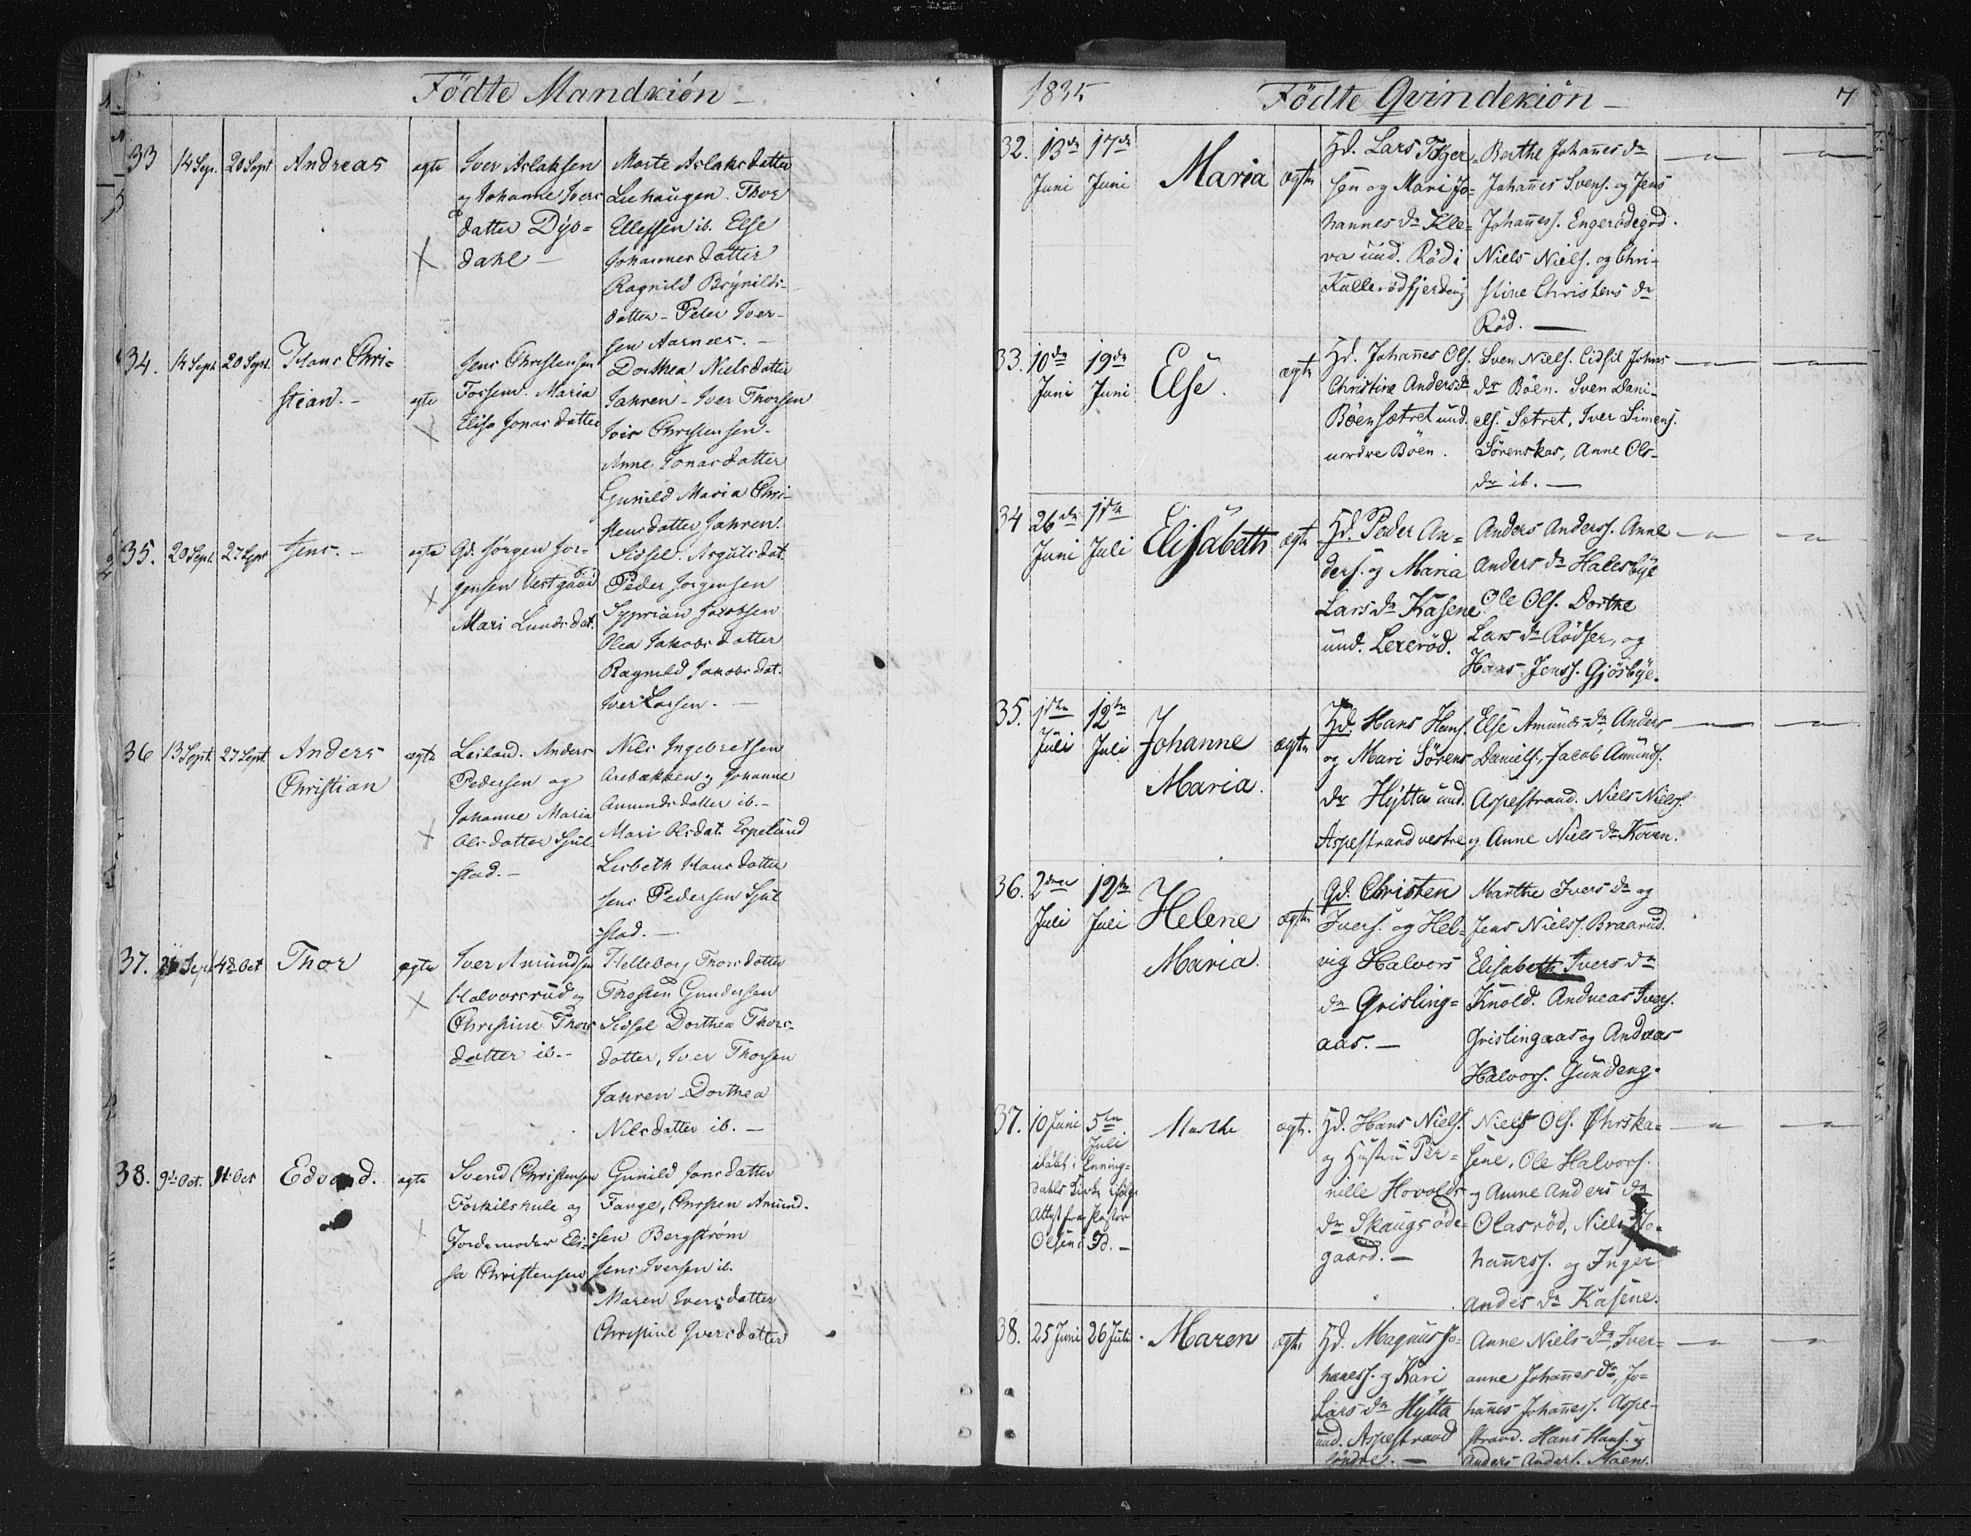 Födte Mandkiön
33 14 Sep. 20 Sept Andreas ægte Iver Aslaksen
og Johanne Ivers
datter Dys=
dahl —
Marte Aslaksdatter
Liehaugen. Thor
Ellefsen ib. Else
Johannesdatter
Ragnild Brynilds-
datter - Peder Iver-
sen Aarnæs. —
34. 14 Sept 20 Sept. Hans Chri-
stian. — ægte
Jens Christensen
Fossum. Maria
Elisa Jonasdatter
Dorthea Nielsdatter
Jahren - Iver Thorsen
Christensen -
Anne Jonasdatter
Gunild Maria Chri-
stensdatter Jahren.
35. 20 Sept. 27 Sept Jens. — ægte Gd. Jørgen Jør-
gensen Vestgaard
Mari Lundsdat.
Sidsel Asgutsdat.
Peder Jørgensen
Syprian Jacobsen
Olea Jakobsdatter
Ragnild Jakobsdat.
Iver Larsen. —
36 13 Sept. 27 Sept. Anders
Christian ægte
Leiland. Anders
Pedersen og
Johanne Maria
Olsdatter Sjul
-stad. —
Nils Ingebretsen
Arebakken og Johanne
Amundsdatter ib. —
Mari Olsdat. Espelund
Lisbeth Hansdatter
Jens Pedersen Sjul
-stad. —
37. Sept 4de Oct Thor ægte Iver Amundsen
Halvorsrud og
Christine Thors
datter ib. -
Helleborg Thorsdatter
Thosten Gundersen
Sidsel Dorthea Thors-
datter, Iver Thorsen
Jahren - Dorthea
Nilsdatter ib. —
38. 9de Oct. 11 Oct Edvard. ægte Svend Christensen
Torkilshule og
Jordemoder Eli-
sa Christensen
Gunild Jonsdatter
Fange, Christen Amund-
sen Bergstrøm
Jens Iversen ib.
Maren Iversdatter
Christine Iversdatter
1835 Födte Qvindekiön — 7
32. 13de 17de
Juni Juni Maria ægte
Hd. Lars Tolger=
sen og Mari Jo=
hannes dr Kle=
va und. Röd i
Kullerödfjerding
Berthe Johannes dr
Johannes Svens. og Jens
Johanness. Engerödegrd.
Niels Niels. og Chri-
stine Christens dr
Röd. —
33. 10de 19de
Juni Juni Else. ægte
Hd. Johannes Ols.
Christine Andersdr
Böensætret und.
nordre Böen.
Sven Niels. Eidsil Johns
dr Böen. Sven Dani-
els. Sætret, Iver Simens.
Sörenskas, Anne Ols-
dr ib. —
34 26de 1ste
Juni Juli Elisabeth ægte
Hd. Peder An=
ders. og Maria
Lars dr Kasene
und. Lexeröd.
Anders Anders. Anne
Anders dr Halesbye
Ole Ols. Dorthe
Lars dr Rödser, og
Hans Jenss. Gjösbye.
35. 1ste 12te
Juli Juli Johanne
Maria. ægte
Hd. Hans Hans.
og Mari Sörens
dr Hytta und.
Aspestrand vestre
Else Amunds dr, Anders
Daniels. Jacob Amunds.
Aspestrand. Niels Niels.
og Anne Niels dr Koven.
36. 2den 12te
Juli Juli Helene
Maria. ægte
Gd. Christen
Ivers. og Hel=
vig Halvors
dr Grisling=
aas. —
Marthe Ivers dr og
Jens Niels. Braarud.
Elisabeth Ivers dr
Knold. Andreas Ivers.
Grislingaas og Andreas
Halvors. Gundeng.
37. 10 Juni 5te
Juli
döbt i Enning-
dahls Kirke ifölge
Attest fra Pastor
Olsen i Id. —
Marthe ægte.
Hd. Hans Niels.
og Hustru Per-
nille Hovolds
dr Skaugsöde-
gaard. —
Niels Ols. Öhrska=
sene, Ole Halvors.
og Anne Anders dr
Olasröd, Niels Jo-
hanness. og Inger
Anders dr Kasene.
38. 25 Juni 26 Juli Maren ægte.
Hd. Magnus Jo-
hanness. og Kari
Lars dr Hytta
und. Aspestrand
söndre. —
Anne Niels dr, Iver-
anne Johannes dr, Jo-
hannes Johanness. Aspe-
strand. Hans Hans. og
Anders Anders. Moen.